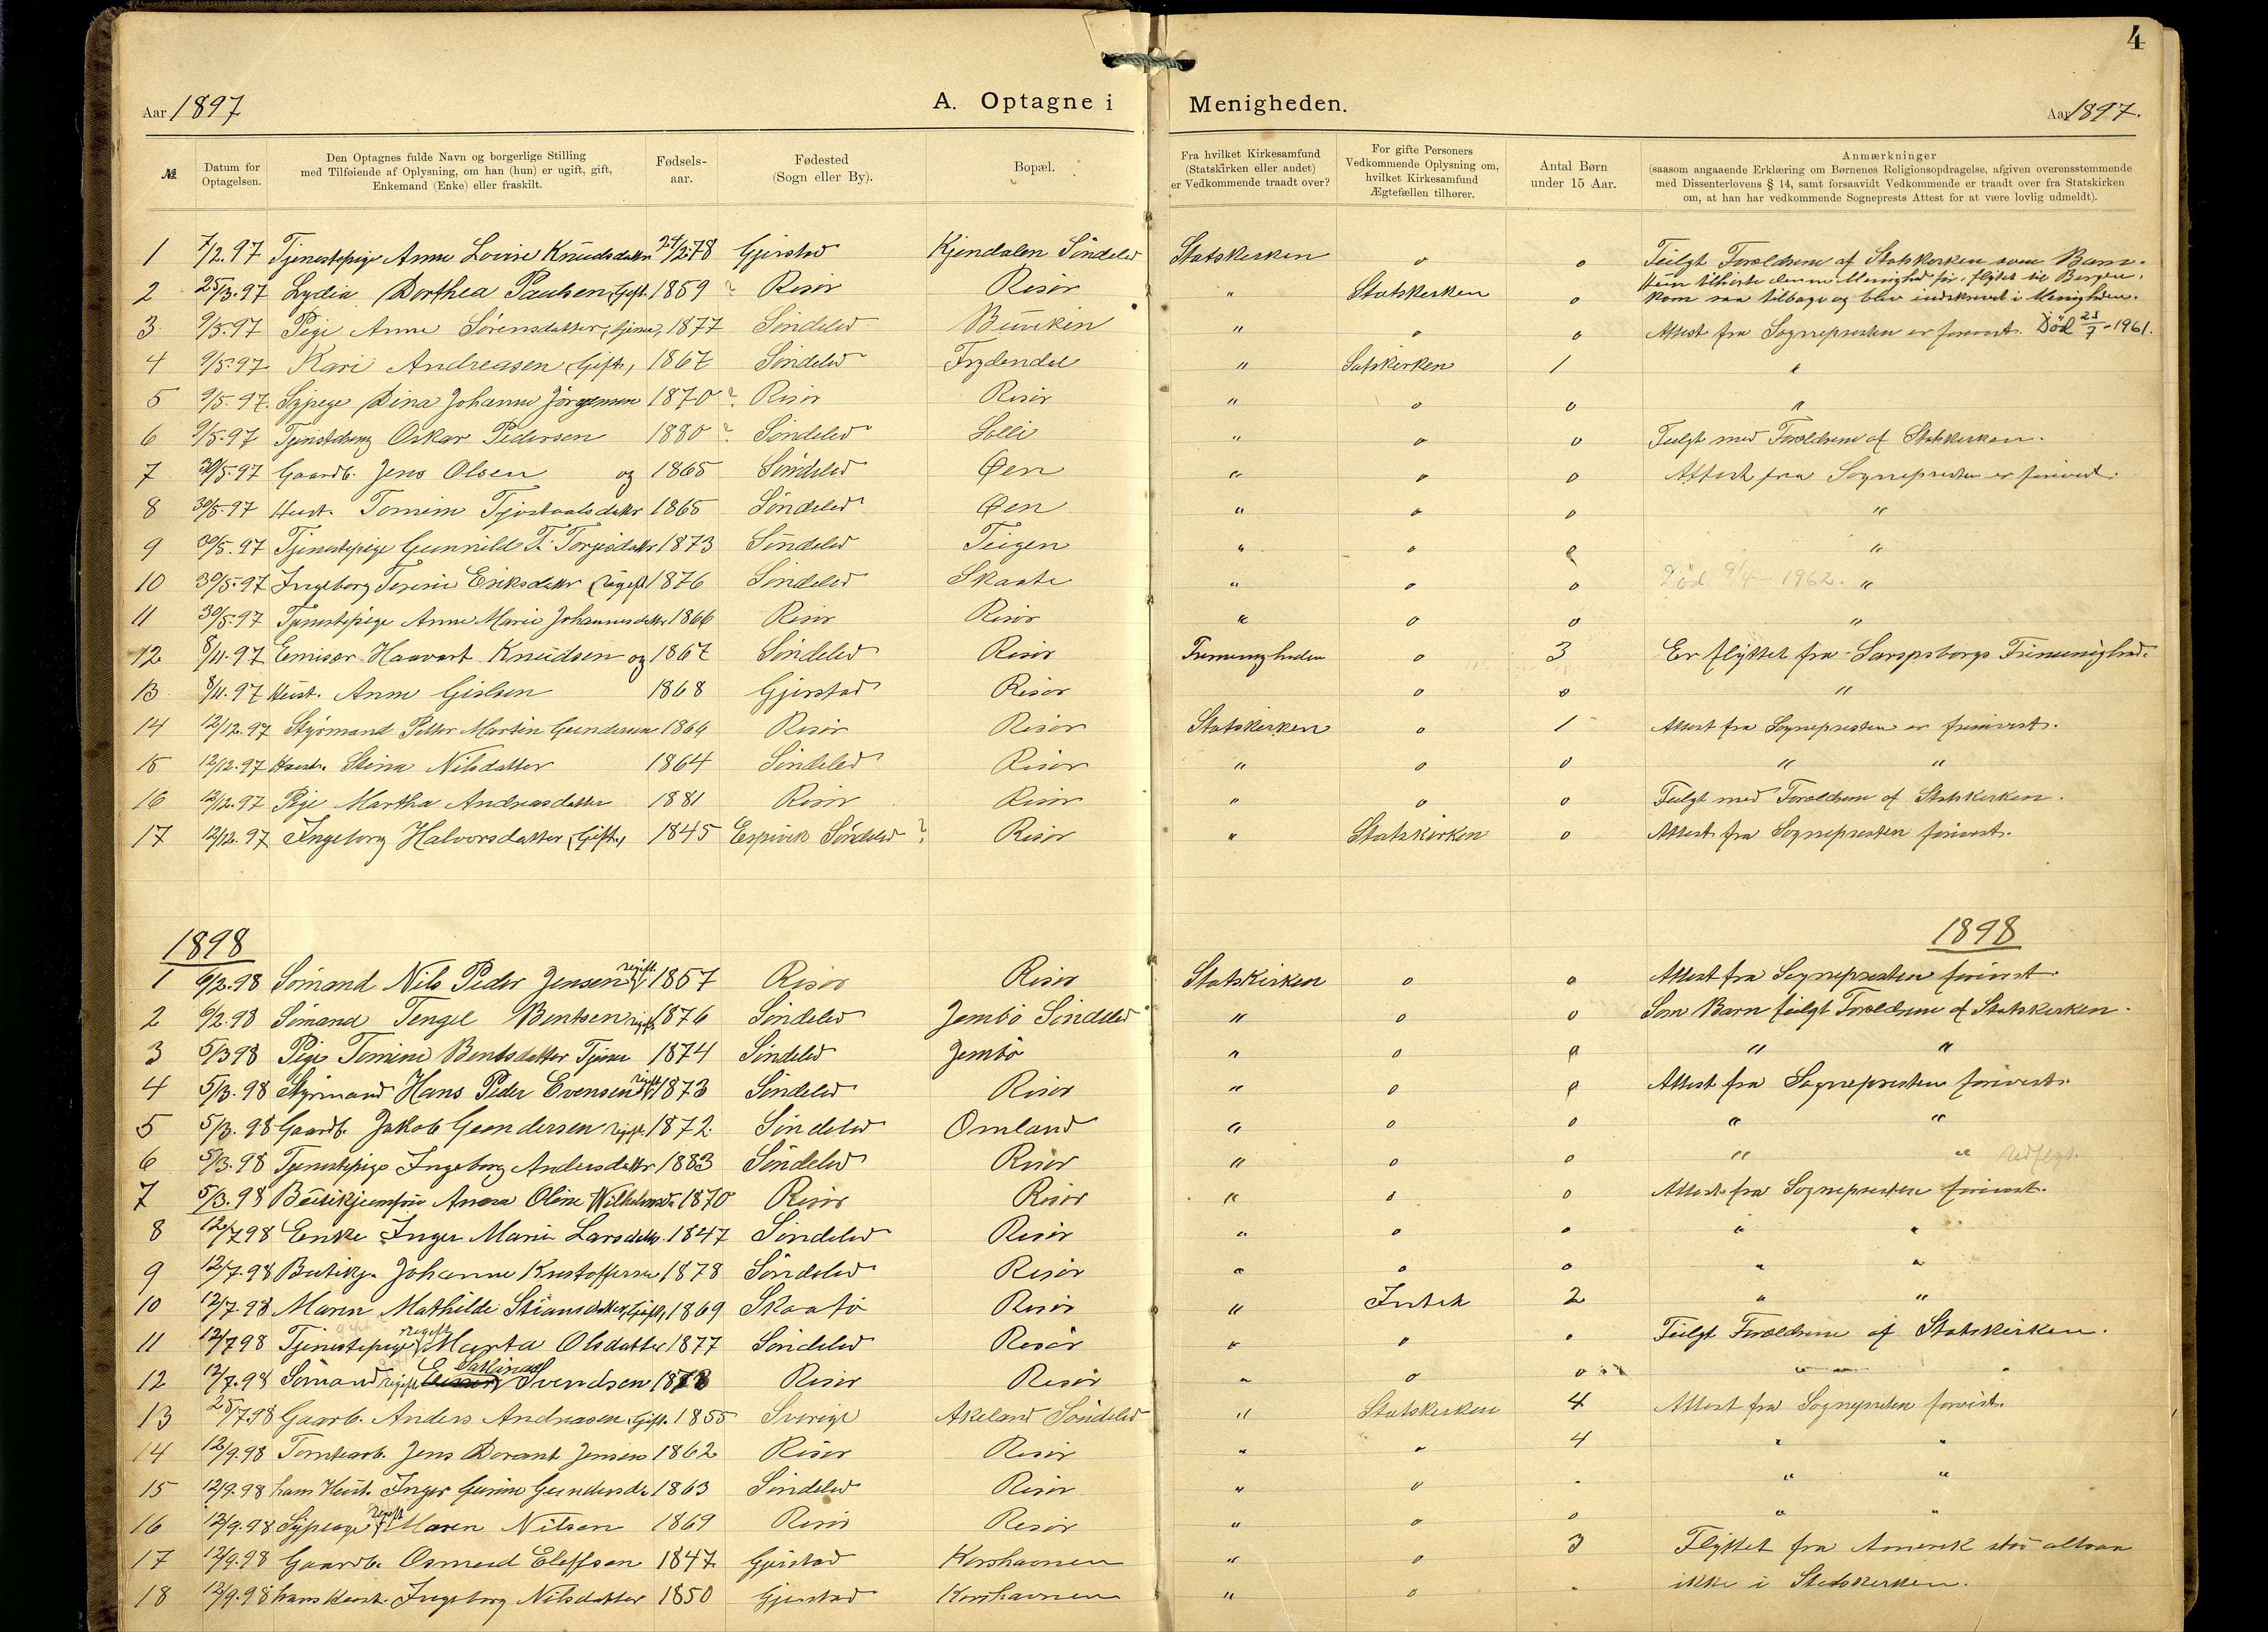 4
Aar 1897
A. Optagne i Menigheden.
Aar 1897.
№. Datum for Optagelsen. Den Optagnes fulde Navn og borgerlige Stilling med Tilføiende af Oplysning, om han (hun) er ugift, gift, Enkemand (Enke) eller fraskilt. Fødsels-aar. Fødested (Sogn eller By). Bopæl. Fra hvilket Kirkesamfund (Statskirken eller andet) er Vedkommende traadt over? For gifte Personers Vedkommende Oplysning om, hvilket Kirkesamfund Ægtefællen tilhører. Antal Børn under 15 Aar. Anmærkninger (saasom angaaende Erklæring om Børnenes Religionsopdragelse, afgiven overensstemmende med Dissenterlovens § 14, samt forsaavidt Vedkommende er traadt over fra Statskirken om, at han har vedkommende Sogneprests Attest for at være lovlig udmeldt).
1 7/2.97 Tjenestepige Anne Lovise Knudsdatter 24/2.78 Gjerstad Kjendalen Söndeled Statskirken o o Fulgt Foreldrene af Statskirken som Barn.
2 25/3.97 Lydia Dorthea Paulsen, Gift. 1859 ? Risör Risör " Statskirken o Hun tilhørte denne Menighed før, flyttet til Bergen, kom saa tilbage og blev indskrevet i Menigheden.
3 9/5.97 Pige Anne Sørensdatter, 1877 Söndeled " o o Attest fra Sognepresten er forevist. Död 23/7-1961.
4 9/5.97 Kari Andreasen, Gift, 1867 Söndeled Frydendal " Satskirken 1 "
5 9/5.97 Sypige Dina Johanne Jörgensen 1870 ? Risör Risör " o o "
6 9/5.97 Tjenestdreng Oskar Pedersen 1880 ? Söndeled Solli " o o Fulgt med Foreldrene af Statskirken.
7 30/5.97 Gaardb. Jens Olsen og 1865 Söndeled Øen " o o Attest fra Sognepresten er forevist.
8 30/5.97 Hust. 1865 Söndeled Øen " o o "
9 30/5.97 Tjenestepige Gunnild T. 1873 Söndeled Teigen " o o "
10 30/5.97 Ingeborg Eriksdatter (ugift) 1876 Söndeled " o o Död 9/4-1962. "
11 30/5.97 Tjenestepige Anne Marie Johannesdatter 1866 Risör Risör " o o "
12 8/11.97 Emisær Haavart Knudsen og 1867 Söndeled Risör Frimenigheden o 3 Er flyttet fra Sarpsborgs Frimenighed.
13 8/11.97 Hust. Anne 1868 Gjerstad Risör o o "
14 12/12.97 Styrmand Petter Martin Gundersen 1864 Risör Risör Statskirken o 1 Attest fra Sognepresten er forevist.
15 12/12.97 Hustr. Stina Nilsdatter 1864 Söndeled Risör " o o " "
16 12/12.97 Pige Martha Andreasdatter 1881 Risör Risör " o o Fulgt med Foreldrene af Statskirken.
17 12/12.97 Ingeborg Halvorsdatter, Gift, 1845 Espivik Söndeled ? Risör " Statskirken o Attest fra Sognepresten forevist.
1898 1898
1 6/2.98 Sömand Nils Peder Jensen ugift 1857 Risör Risör Statskirken o o Attest fra Sognepresten forevist.
2 6/2.98 Sömand Tengel Bentsen ugift 1876 Söndeled Jembö Söndeled " o o Som Barn fulgt Foreldrene af Statskirken.
3 5/3 98 Pige Bentsdatter 1874 Söndeled Jembö " o o " "
4 5/3.98 Styrmand Hans Peder Evensen ugift 1873 Söndeled Risör " o o Attest fra Sognepresten forevist.
5 5/3.98 Gaardb. Jakob Gundersen ugift. 1872 Söndeled Omland " o o " "
6 5/3.98 Tjenestepige Ingeborg Andersdatter 1883 Söndeled Risör " o o " "
7 5/3.98 Anna Oline 1870 Risör Risör " o o Attest fra Sognepresten forevist.
8 12/7 98 Enke Inger Marie Larsdatter 1847 Söndeled Risör " o o " "
9 12/7.98 Butikj. Johanne Kristoffersen 1878 Söndeled Risör " o o " "
10 12/7.98 Maren Mathilde Gift, 1869 Skaatö Risör " Intet 2 " "
11 12/7 98 Tjenestepige ugift Marta Olsdatter 1877 Söndeled Risör " o o Fulgt Foreldrene af Statskirken.
12 12/7.98 Sömand ugift Svendsen Risör Risör " o o " "
13 25/7.98 Gaarb. Anders Andreasen Gift. 1855 Sverige Akeland Söndeled " Statskirken 4 Attest fra Sognepresten forevist.
14 12/9.98 Tomtearb. Jens Dorant Jensen 1862 Risör Risör " " 4 " "
15 12/9.98 hans Hust. Inger Gurine 1863 Söndeled Risör " o " "
16 12/9.98 Sypige ugift Maren Nilsen 1869 Risör Risör " o o " "
17 12/9.98 Gaardb. Osmund Eleffsen 1847 Gjerstad Korshavnen " o 3 Flyttet fra Amerik stod altsaa
18 12/9.98 hans Hust. Ingeborg Nilsdatter 1850 Gjerstad Korshavnen " o ikke i Statskirken.